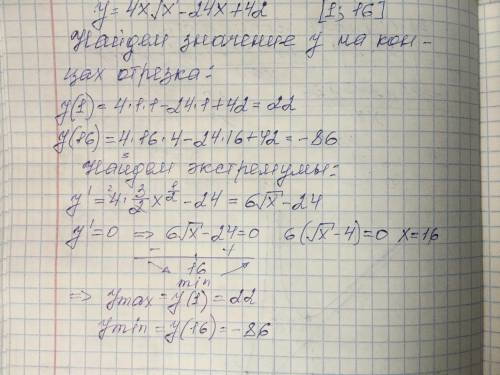 y=4x√x-24x+42 [1; 16]
Найдем значение y на кон-
цах отрезка:
y(1)=4·1·1-24·1+42=22
y(16)=4·16·4-24·16+42=-86
Найдем экстремумы:
y'=4·3/2 x^1/2 -24=6√x-24
y'=0 => 6√x-24=0 6(√x-4)=0 x=16
- +
16
min
=> ymax=y(1)=22
ymin=y(16)=-86